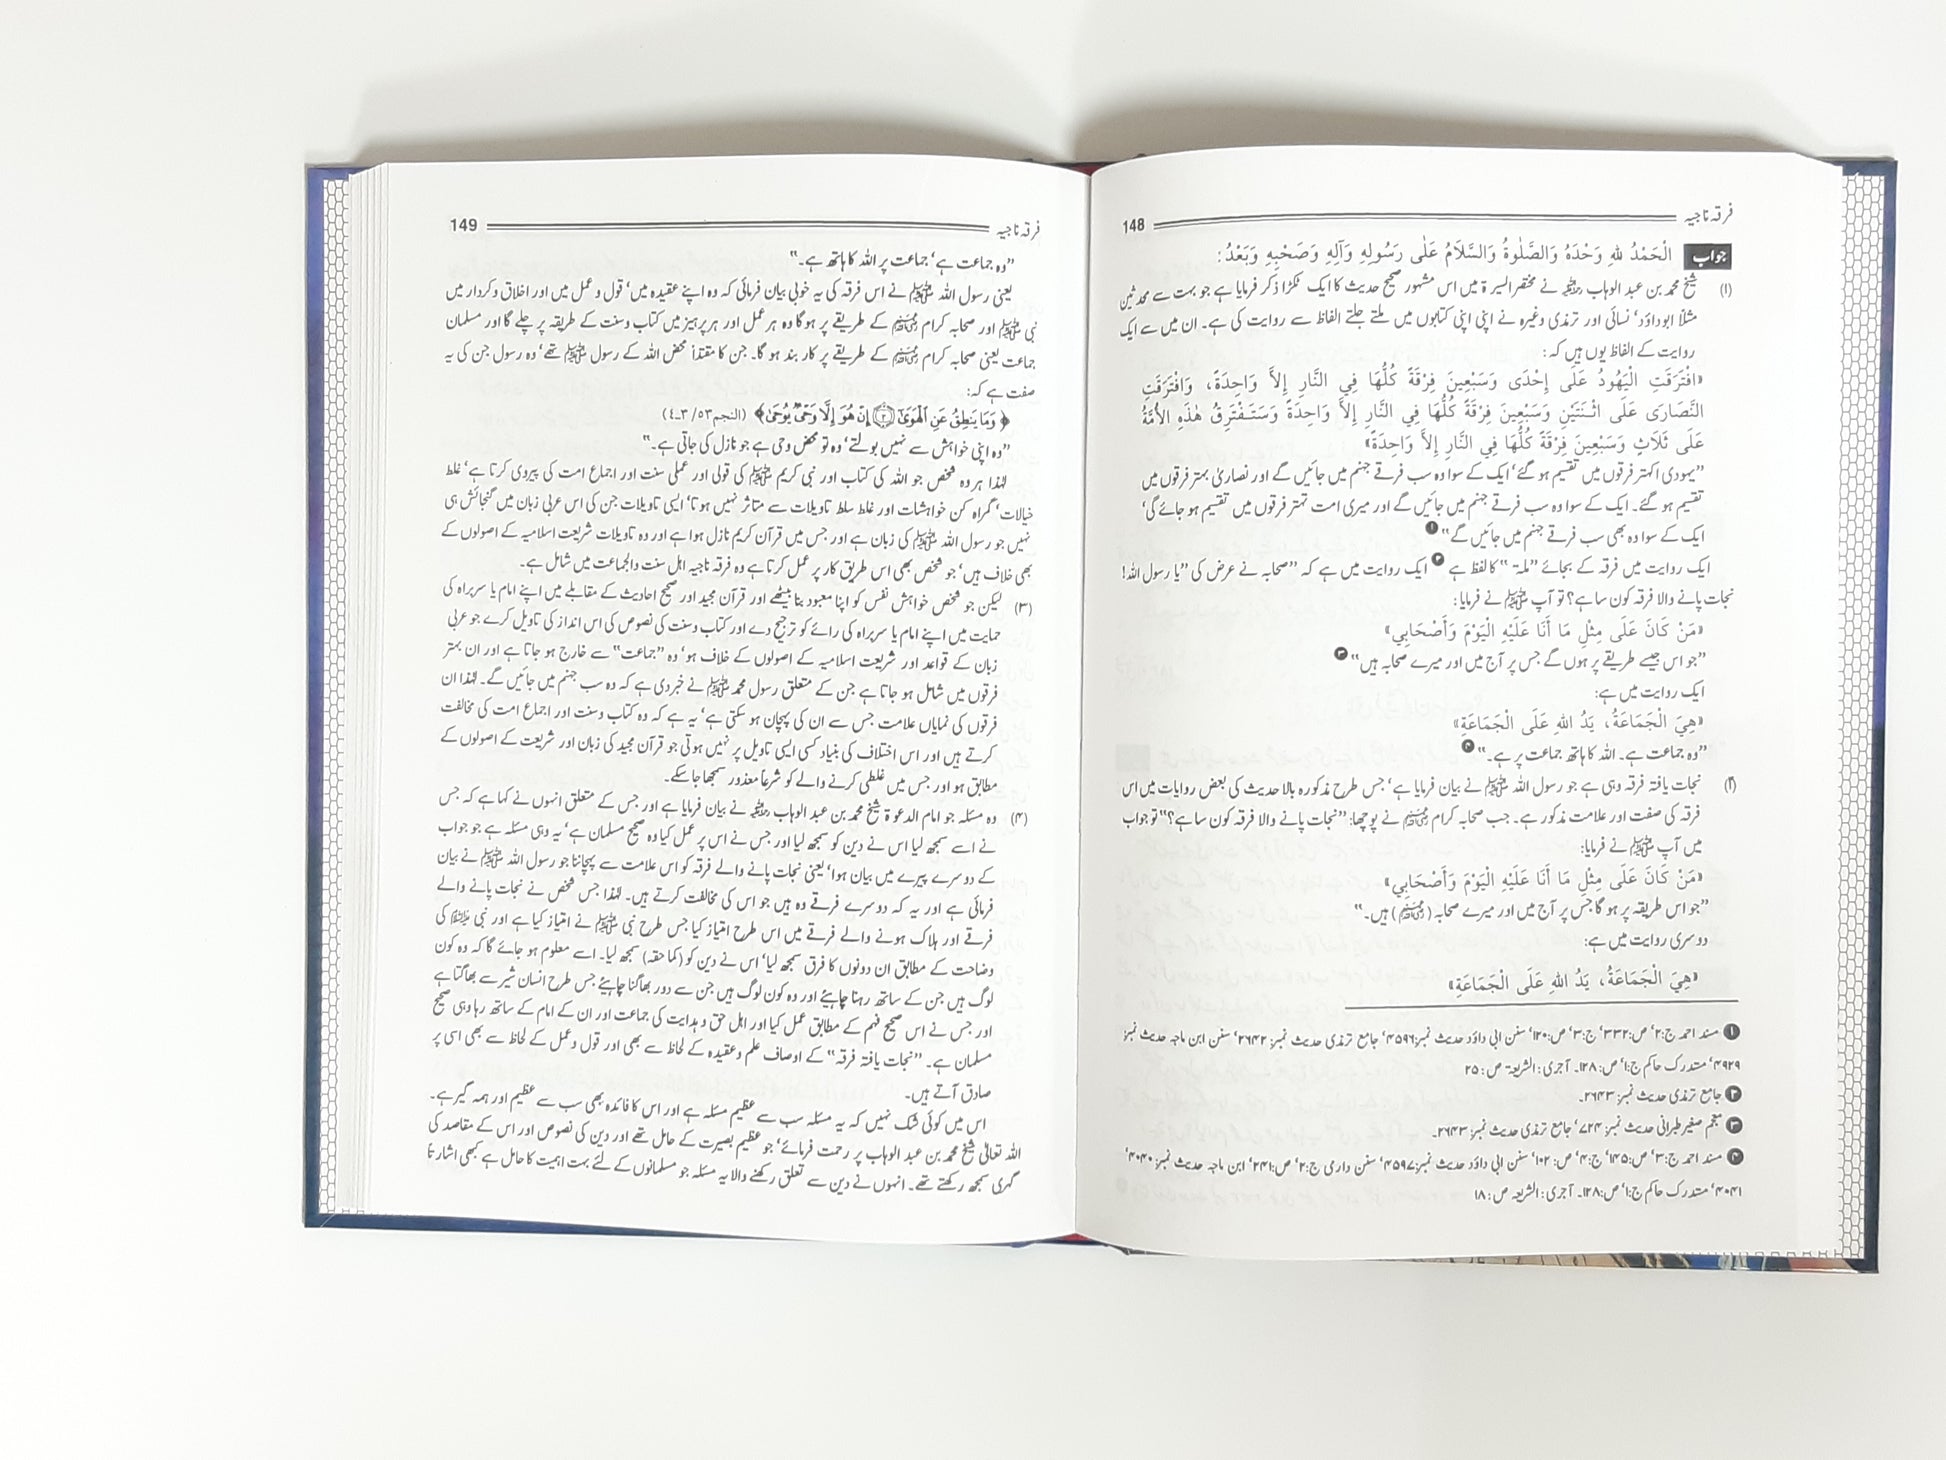 فرقہ ناجیہ 148
جواب الْحَمْدُ للهِ وَحْدَهُ وَالصَّلٰوةُ وَالسَّلَامُ عَلٰى رَسُولِهِ وَآلِهِ وَصَحْبِهِ وَبَعْدُ:
(۱) شیخ محمد بن عبد الوہاب رحمہ اللہ نے مختصر السیرۃ میں اس مشہور صحیح حدیث کا ایک ٹکڑا ذکر فرمایا ہے جو بہت سے محدثین
مثلاً ابوداؤد‘ نسائی اور ترمذی وغیرہ نے اپنی اپنی کتابوں میں ملتے جلتے الفاظ سے روایت کی ہے۔ ان میں سے ایک
روایت کے الفاظ یوں ہیں کہ:
«افْتَرَقَتِ الْيَهُودُ عَلَى إِحْدَى وَسَبْعِينَ فِرْقَةً كُلُّهَا فِي النَّارِ إِلاَّ وَاحِدَةً، وَافْتَرَقَتِ
النَّصَارَى عَلَى اثْنَتَيْنِ وَسَبْعِينَ فِرْقَةً كُلُّهَا فِي النَّارِ إِلاَّ وَاحِدَةً وَسَتَفْتَرِقُ هٰذِهِ الأُمَّةُ
عَلَى ثَلاَثٍ وَسَبْعِينَ فِرْقَةً كُلُّهَا فِي النَّارِ إِلاَّ وَاحِدَةً»
”یہودی اکہتر فرقوں میں تقسیم ہو گئے‘ ایک کے سوا وہ سب فرقے جہنم میں جائیں گے اور نصاریٰ بہتر فرقوں میں
تقسیم ہو گئے۔ ایک کے سوا وہ سب فرقے جہنم میں جائیں گے اور میری امت تہتر فرقوں میں تقسیم ہو جائے گی‘
ایک کے سوا وہ بھی سب فرقے جہنم میں جائیں گے“ ❶
ایک روایت میں فرقہ کے بجائے ”ملۃ“ کا لفظ ہے ❷ ایک روایت میں ہے کہ ”صحابہ نے عرض کی ”یا رسول اللہ!
نجات پانے والا فرقہ کون سا ہے؟ تو آپ ﷺ نے فرمایا:
«مَنْ كَانَ عَلَى مِثْلِ مَا أَنَا عَلَيْهِ الْيَوْمَ وَأَصْحَابِي»
”جو اس جیسے طریقے پر ہوں گے جس پر آج میں اور میرے صحابہ ہیں“ ❸
ایک روایت میں ہے:
«هِيَ الْجَمَاعَةُ، يَدُ اللهِ عَلَى الْجَمَاعَةِ»
”وہ جماعت ہے۔ اللہ کا ہاتھ جماعت پر ہے۔“ ❹
(۲) نجات یافتہ فرقہ وہی ہے جو رسول اللہ ﷺ نے بیان فرمایا ہے‘ جس طرح مذکورہ بالا حدیث کی بعض روایات میں اس
فرقہ کی صفت اور علامت مذکور ہے۔ جب صحابہ کرام رضی اللہ عنہم نے پوچھا: ”نجات پانے والا فرقہ کون سا ہے؟“ تو جواب
میں آپ ﷺ نے فرمایا:
«مَنْ كَانَ عَلَى مِثْلِ مَا أَنَا عَلَيْهِ الْيَوْمَ وَأَصْحَابِي»
”جو اس طریقہ پر ہو گا جس پر آج میں اور میرے صحابہ (رضی اللہ عنہم) ہیں۔“
دوسری روایت میں ہے:
«هِيَ الْجَمَاعَةُ، يَدُ اللهِ عَلَى الْجَمَاعَةِ»
❶ مسند احمد ج:۲‘ ص:۳۳۲‘ ج:۳‘ ص:۱۲۰‘ سنن ابی داؤد حدیث نمبر:۴۵۹۶‘ جامع ترمذی حدیث نمبر: ۲۶۴۲‘ سنن ابن ماجہ حدیث نمبر:
۴۹۲۹‘ مستدرک حاکم ج:۱‘ ص:۱۲۸۔ آجری: الشریعۃ ص: ۲۵
❷ جامع ترمذی حدیث نمبر: ۲۶۴۳۔
❸ معجم صغیر طبرانی حدیث نمبر: ۷۲۴‘ جامع ترمذی حدیث نمبر: ۲۶۴۳۔
❹ مسند احمد ج:۳‘ ص:۱۴۵‘ ج:۴‘ ص: ۱۰۲‘ سنن ابی داؤد حدیث نمبر:۴۵۹۷‘ سنن دارمی ج:۲‘ ص:۲۴۱‘ ابن ماجہ حدیث نمبر: ۴۰۴۰‘
۴۰۴۱‘ مستدرک حاکم ج:۱‘ ص:۱۲۸۔ آجری: الشریعہ ص: ۱۸
فرقہ ناجیہ 149
”وہ جماعت ہے‘ جماعت پر اللہ کا ہاتھ ہے۔“
یعنی رسول اللہ ﷺ نے اس فرقہ کی یہ خوبی بیان فرمائی کہ وہ اپنے عقیدہ میں‘ قول و عمل میں اور اخلاق و کردار میں
نبی ﷺ اور صحابہ کرام رضی اللہ عنہم کے طریقے پر ہو گا وہ ہر عمل اور ہر پرہیز میں کتاب وسنت کے طریقہ پر چلے گا اور مسلمان
جماعت یعنی صحابہ کرام رضی اللہ عنہم کے طریقے پر کار بند ہو گا۔ جن کا مقتدا محض اللہ کے رسول ﷺ تھے‘ وہ رسول جن کی یہ
صفت ہے کہ:
﴿وَمَا يَنطِقُ عَنِ الْهَوَىٰٓ ۝٣ إِنْ هُوَ إِلَّا وَحْىٌ يُوحَىٰ﴾ (النجم۵۳/ ۳۔۴)
”وہ اپنی خواہش سے نہیں بولتے‘ وہ تو محض وحی ہے جو نازل کی جاتی ہے۔“
لہٰذا ہر وہ شخص جو اللہ کی کتاب اور نبی کریم ﷺ کی قولی اور عملی سنت اور اجماع امت کی پیردی کرتا ہے‘ غلط
خیالات‘ گمراہ کن خواہشات اور غلط سلط تاویلات سے متاثر نہیں ہوتا‘ ایسی تاویلات جن کی اس عربی زبان میں گنجائش ہی
نہیں جو رسول اللہ ﷺ کی زبان ہے اور جس میں قرآن کریم نازل ہوا ہے اور وہ تاویلات شریعت اسلامیہ کے اصولوں کے
بھی خلاف ہیں‘ جو شخص بھی اس طریق کار پر عمل کرتا ہے وہ فرقہ ناجیہ اہل سنت والجماعت میں شامل ہے۔
(۳) لیکن جو شخص خواہش نفس کو اپنا معبود بنا بیٹھے اور قرآن مجید اور صحیح احادیث کے مقابلے میں اپنے امام یا سربراہ کی
حمایت میں اپنے امام یا سربراہ کی رائے کو ترجیح دے اور کتاب وسنت کی نصوص کی اس انداز کی تاویل کرے جو عربی
زبان کے قواعد اور شریعت اسلامیہ کے اصولوں کے خلاف ہو‘ وہ ”جماعت“ سے خارج ہو جاتا ہے اور ان بہتر
فرقوں میں شامل ہو جاتا ہے جن کے متعلق رسول محمد ﷺ نے خبر دی ہے کہ وہ سب جہنم میں جائیں گے۔ لہٰذا ان
فرقوں کی نمایاں علامت جس سے ان کی پہچان ہو سکتی ہے‘ یہ ہے کہ وہ کتاب وسنت اور اجماع امت کی مخالفت
کرتے ہیں اور اس اختلاف کی بنیاد کسی ایسی تاویل پر نہیں ہوتی جو قرآن مجید کی زبان اور شریعت کے اصولوں کے
مطابق ہو اور جس میں غلطی کرنے والے کو شرعاً معذور سمجھا جاسکے۔
(۴) وہ مسئلہ جو امام الدعوۃ شیخ محمد بن عبد الوہاب رحمہ اللہ نے بیان فرمایا ہے اور جس کے متعلق انہوں نے کہا ہے کہ جس
نے اسے سمجھ لیا اس نے دین کو سمجھ لیا اور جس نے اس پر عمل کیا وہ صحیح مسلمان ہے‘ یہ وہی مسئلہ ہے جو جواب
کے دوسرے پیرے میں بیان ہوا‘ یعنی نجات پانے والے فرقہ کو اس علامت سے پہچاننا جو رسول اللہ ﷺ نے بیان
فرمائی ہے اور یہ کہ دوسرے فرقے وہ ہیں جو اس کی مخالفت کرتے ہیں۔ لہٰذا جس شخص نے نجات پانے والے
فرقے اور ہلاک ہونے والے فرقے میں اس طرح امتیاز کیا جس طرح نبی ﷺ نے امتیاز کیا ہے اور نبی ﷺ کی
وضاحت کے مطابق ان دونوں کا فرق سمجھ لیا‘ اس نے دین کو (کما حقہ) سمجھ لیا۔ اسے معلوم ہو جائے گا کہ وہ کون
لوگ ہیں جن کے ساتھ رہنا چاہیئے اور وہ کون لوگ ہیں جن سے دور بھاگنا چاہیئے جس طرح انسان شیر سے بھاگتا ہے
اور جس نے اس صحیح فہم کے مطابق عمل کیا اور اہل حق و ہدایت کی جماعت اور ان کے امام کے ساتھ رہا وہی صحیح
مسلمان ہے۔ ”نجات یافتہ فرقہ“ کے اوصاف علم و عقیدہ کے لحاظ سے بھی اور قول و عمل کے لحاظ سے بھی اسی پر
صادق آتے ہیں۔
اس میں کوئی شک نہیں کہ یہ مسئلہ سب سے عظیم مسئلہ ہے اور اس کا فائدہ بھی سب سے عظیم اور ہمہ گیر ہے۔
اللہ تعالیٰ شیخ محمد بن عبد الوہاب پر رحمت فرمائے‘ جو عظیم بصیرت کے حامل تھے اور دین کی نصوص اور اس کے مقاصد کی
گہری سمجھ رکھتے تھے۔ انہوں نے دین سے تعلق رکھنے والا یہ مسئلہ جو مسلمانوں کے لئے بہت اہمیت کا حامل ہے کبھی اشارتاً